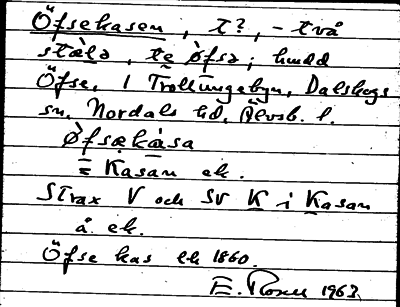 Öfsekasen, t?, - två
ställe, te öfsa; hudd
Öfse, i Trollungebyn, Dalskogs
sn, Nordals hd, Älvsb. l.
Øfsekåsa
= Kasan ek.
Strax V och SV K i Kasan
å. ek.
Öfse kas ek 1860.
E. Rosell 1963